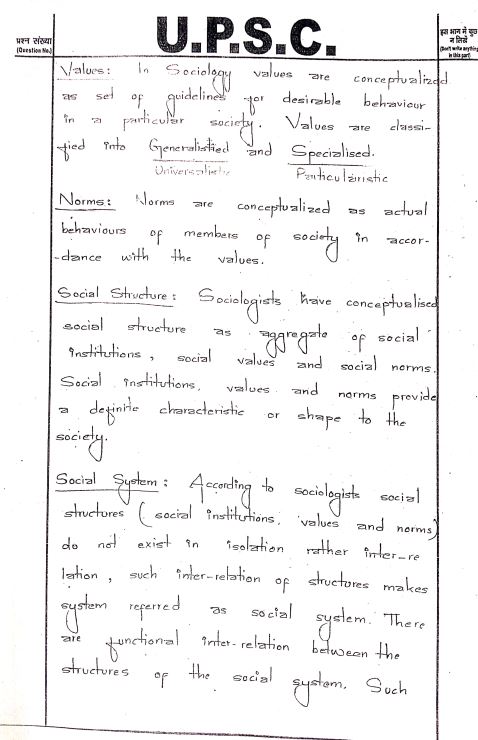 प्रश्न संख्या
(Question No.)
U.P.S.C.
इस भाग में कुछ
न लिखें
(Don't write anything
in this part)
Values: In Sociology values are conceptualized
as set of guidelines for desirable behaviour
in a particular society. Values are classi-
fied into Generalistied and Specialised.
Universalistic Particularistic
Norms: Norms are conceptualized as actual
behaviours of members of society in accor-
-dance with the values.
Social Structure: Sociologists have conceptualised
social structure as aggregate of social
institutions, social values and social norms.
Social institutions, values and norms provide
a definite characteristic or shape to the
society.
Social System: According to sociologists social
structures (social institutions, values and norms)
do not exist in isolation rather inter-re
lation, such inter-relation of structures makes
system referred as social system. There
are functional inter-relation between the
structures of the social system. Such